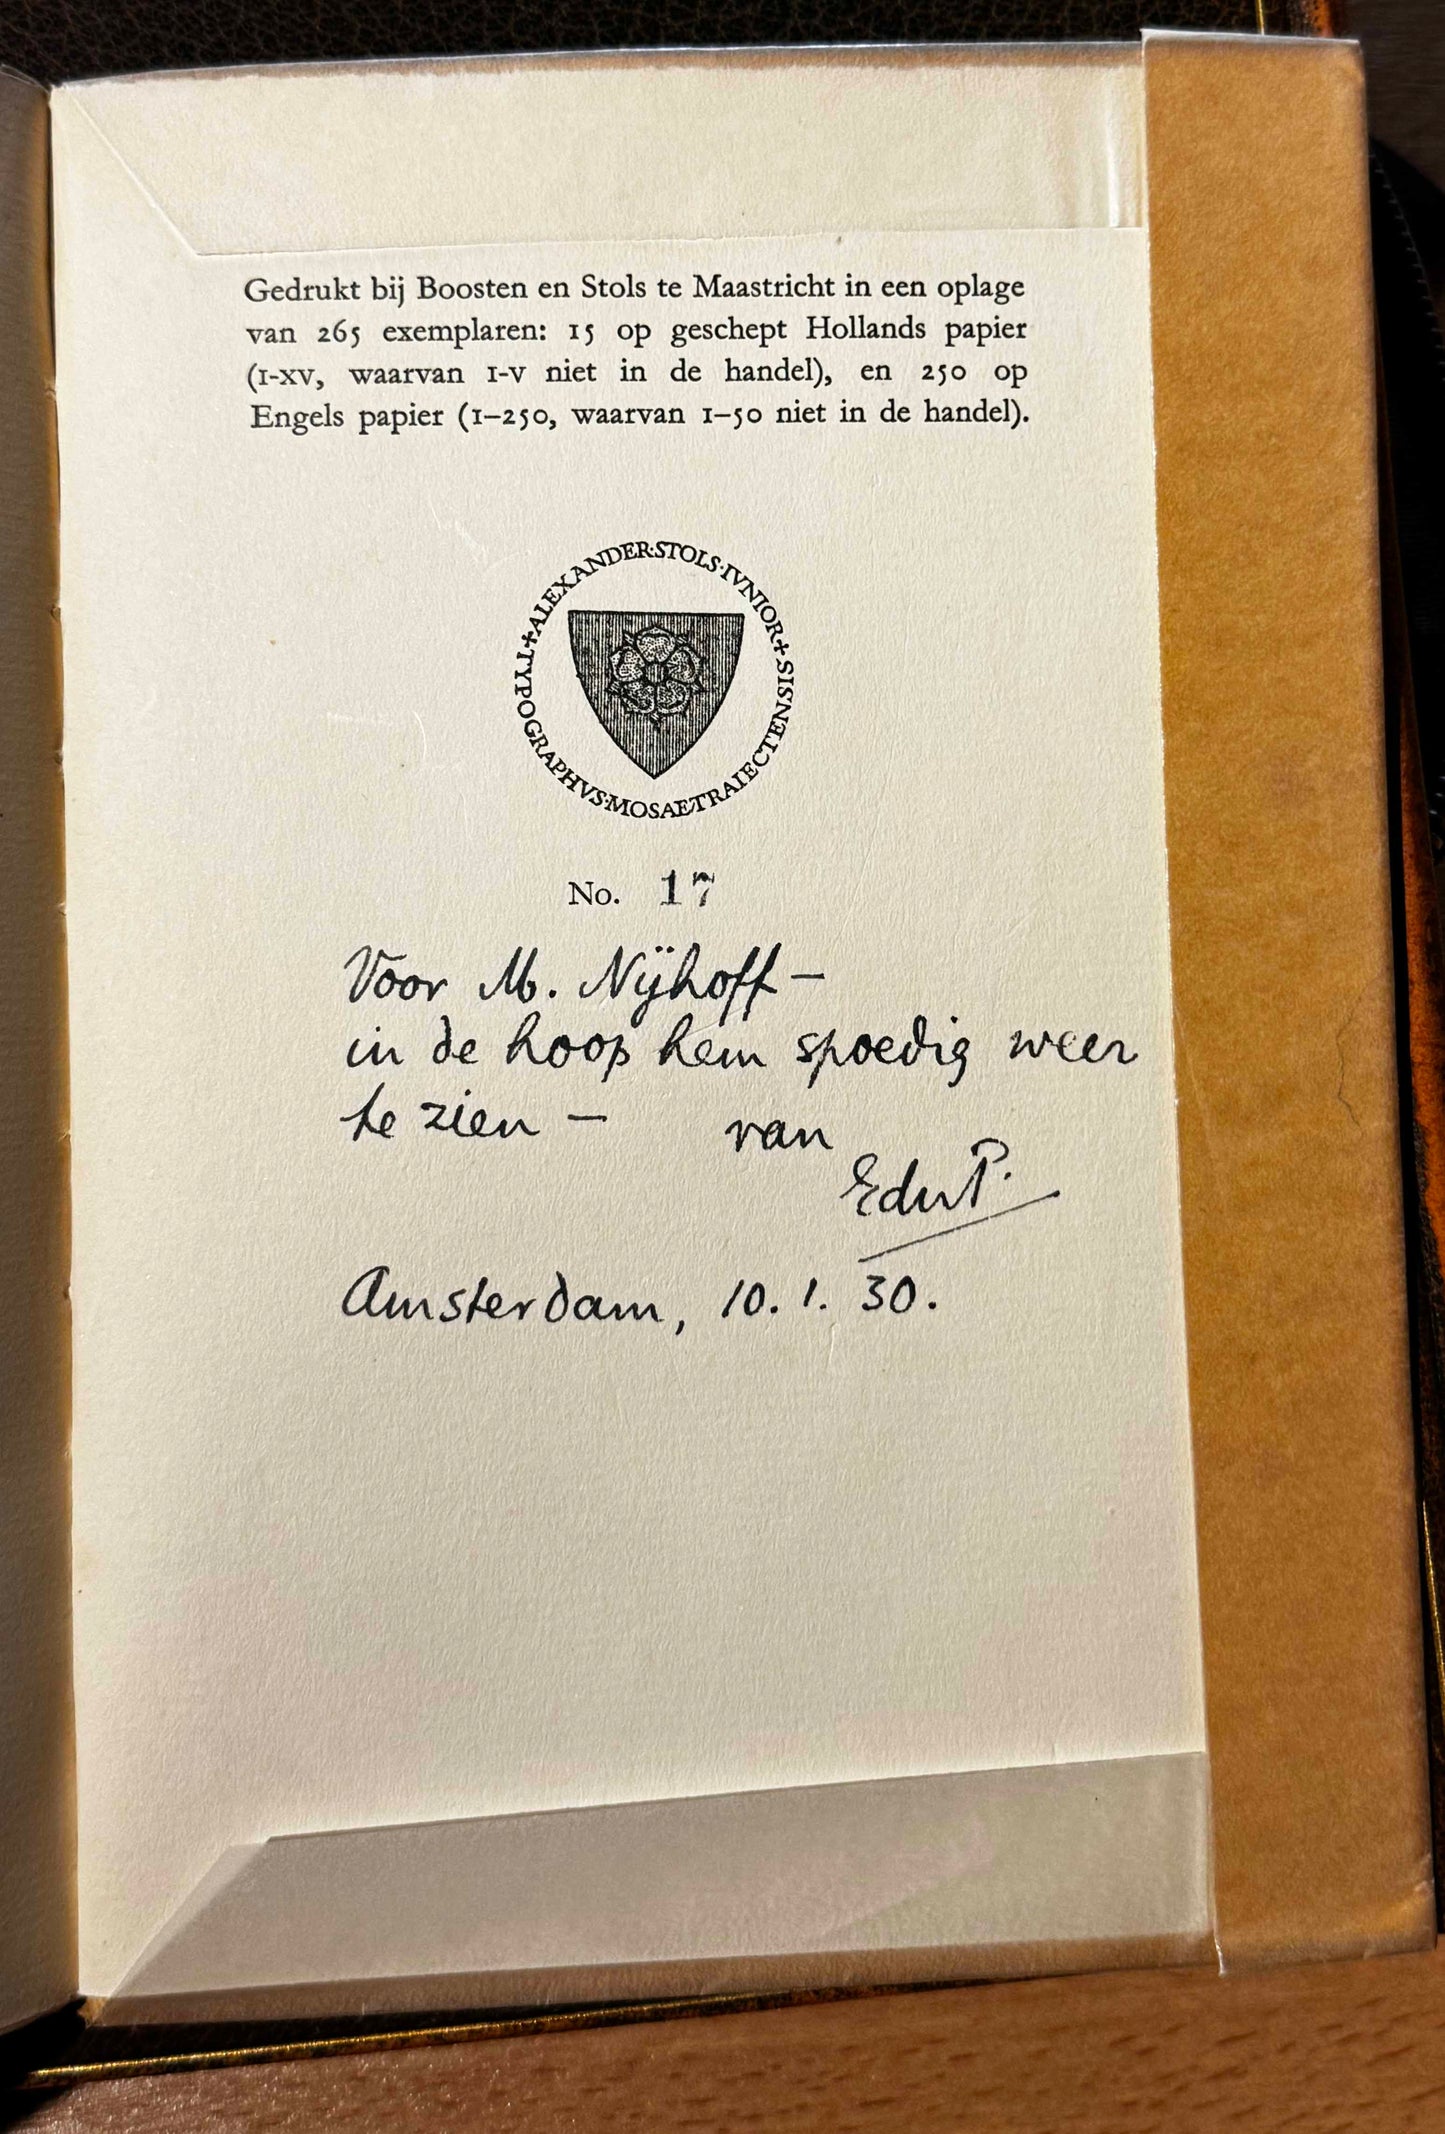 Gedrukt bij Boosten en Stols te Maastricht in een oplage
van 265 exemplaren: 15 op geschept Hollands papier
(I-XV, waarvan I-V niet in de handel), en 250 op
Engels papier (1–250, waarvan 1–50 niet in de handel).
✝ALEXANDER·STOLS·IVNIOR✝SISNESTCEIARTEASOM·SVHPARGOPYT
No. 17
Voor M. Nijhoff —
in de hoop hem spoedig weer
te zien — van
EduP.
Amsterdam, 10. 1. 30.